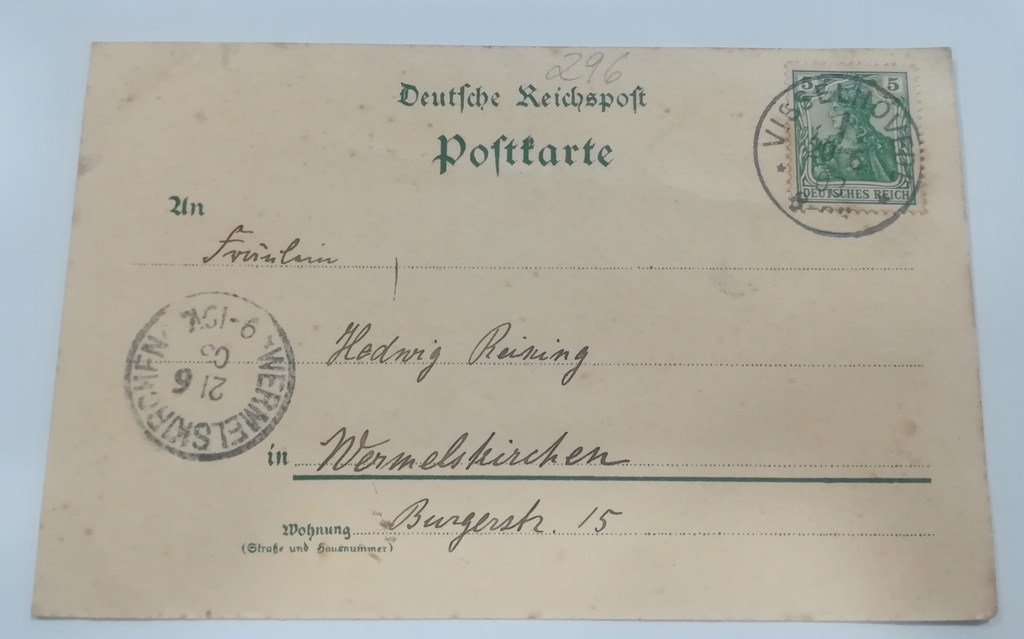 296
Deutsche Reichspost
Postkarte
5 5
DEUTSCHES REICH
VISSELHÖVEDE
An
Fräulein
Hedwig Reining
in Wermelskirchen
Wohnung Burgerstr. 15
(Straße und Hausnummer)
WERMELSKIRCHEN
21 6
03
9-10V.